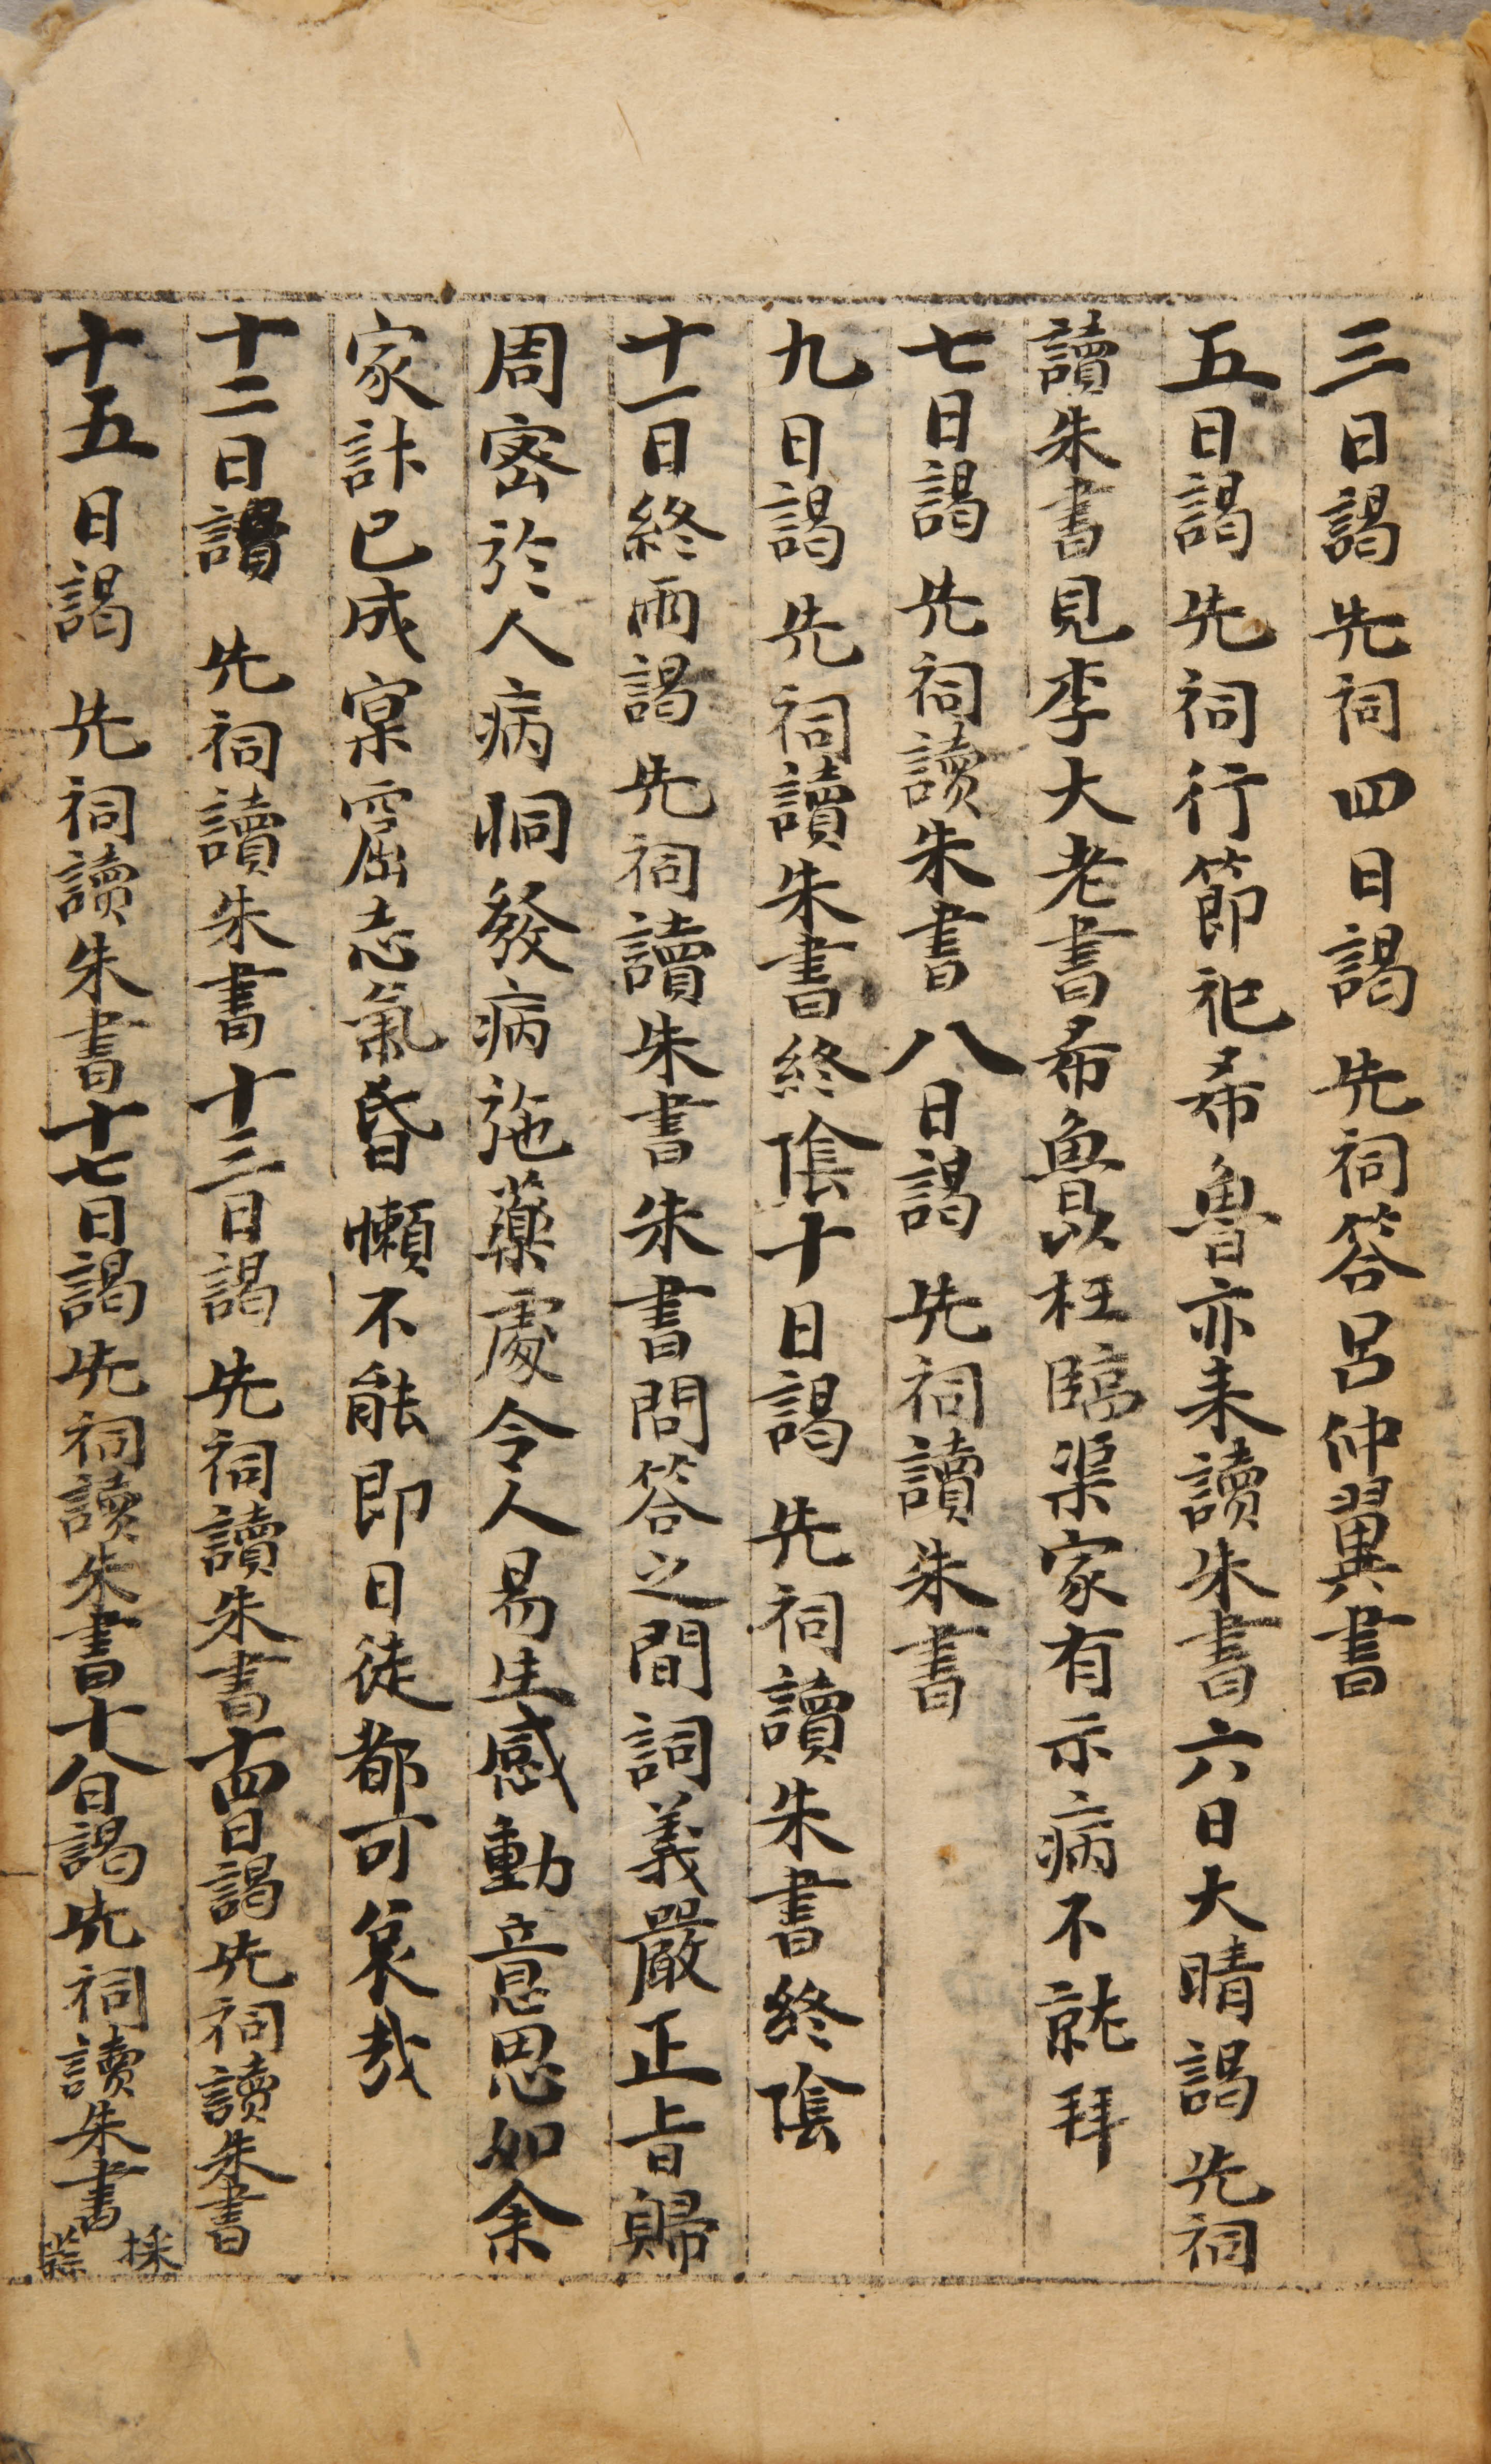 三日謁 先祠四日謁 先祠答呂仲翼書
五日謁 先祠行節祀希魯亦来讀朱書六日大晴謁 先祠
讀朱書見李大老書希魯以枉臨渠家有示病不就拜
七日謁 先祠讀朱書八日謁 先祠讀朱書
九日謁 先祠讀朱書終陰十日謁 先祠讀朱書終陰
十一日終雨謁 先祠讀朱書朱書問答之間詞義嚴正旨歸
周密於人病恫發病施藥處令人易生感動意思如余
家計已成窠窟志氣昏懶不能即日徒都可哀哉
十二日謁 先祠讀朱書十三日謁 先祠讀朱書十四日謁先祠讀朱書
十五日謁 先祠讀朱書十七日謁先祠讀朱書十八日謁先祠讀朱書採